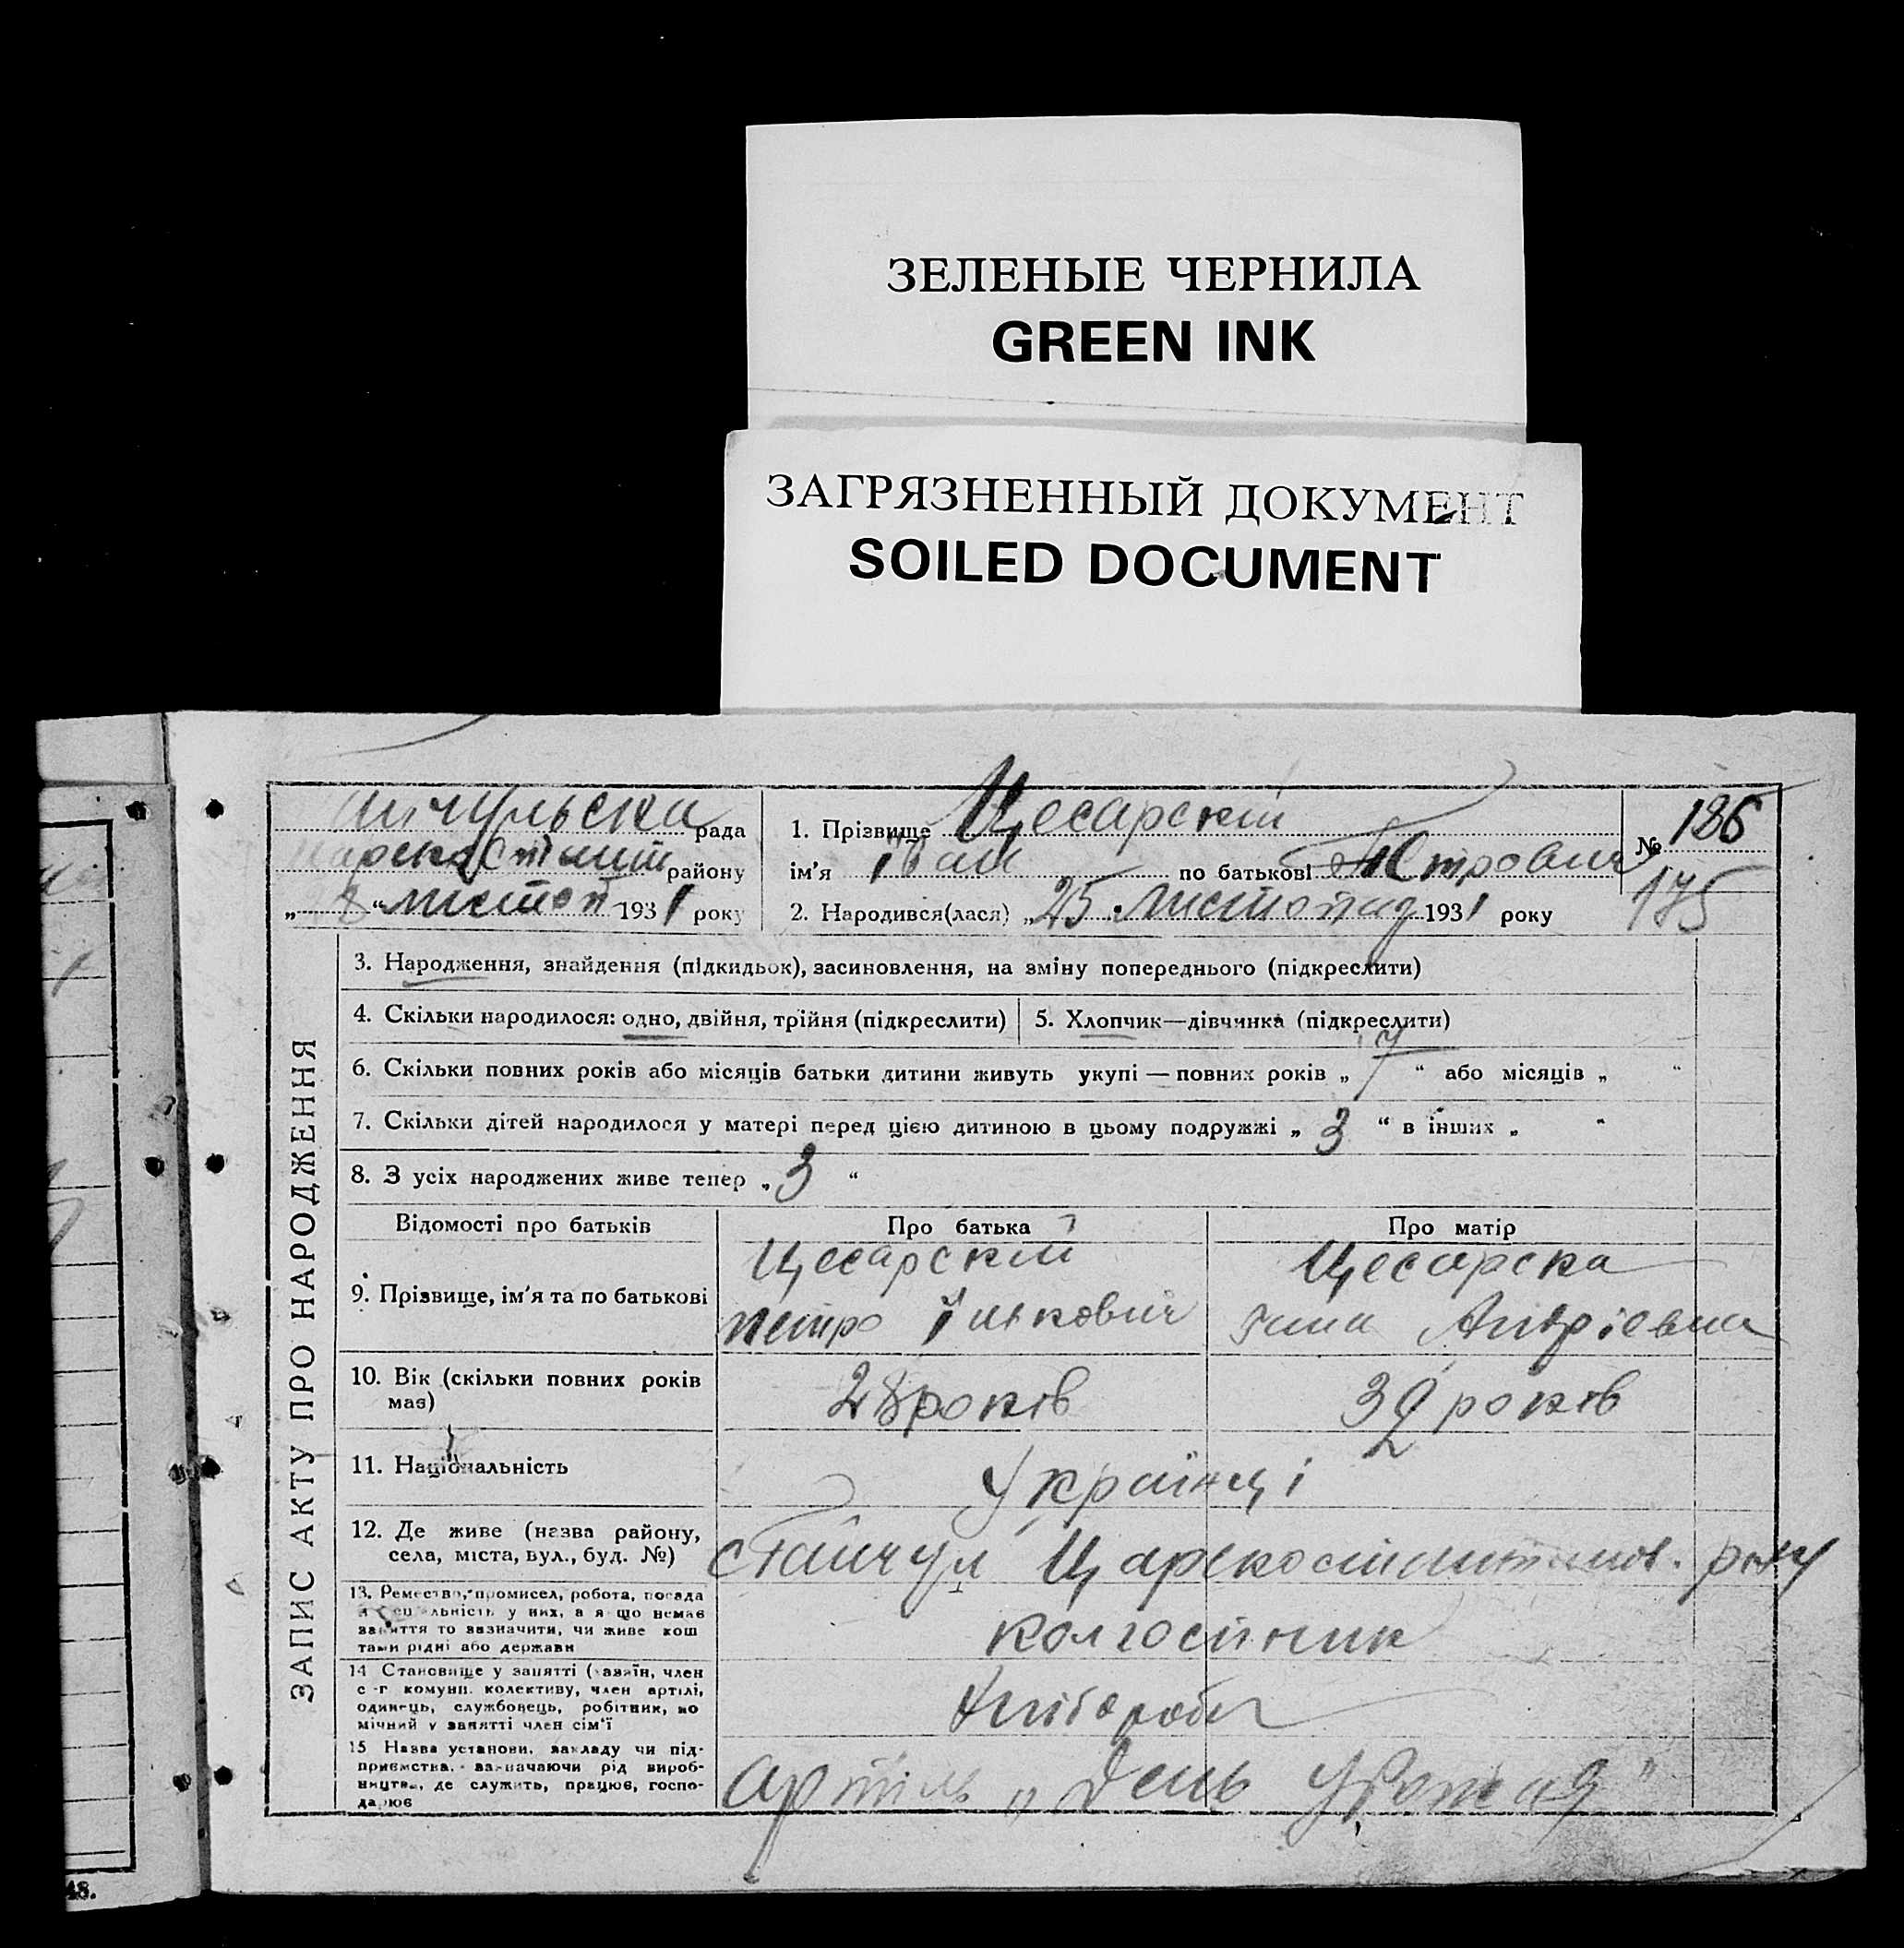 ЗЕЛЕНЫЕ ЧЕРНИЛА
GREEN INK
ЗАГРЯЗНЕННЫЙ ДОКУМЕНТ
SOILED DOCUMENT
рада
району
„ 28 “ листоп 1931 року
1. Прізвище Цесарский
ім'я Іван по батькові Петрович
2. Народився(лася) „25 листопад 1931 року
№ 186
175
ЗАПИС АКТУ ПРО НАРОДЖЕННЯ
3. Народження, знайдення (підкидьок), засиновлення, на зміну попереднього (підкреслити)
4. Скільки народилося: одно, двійня, трійня (підкреслити)
5. Хлопчик—дівчинка (підкреслити)
6. Скільки повних років або місяців батьки дитини живуть укупі — повних років „ 7 “ або місяців „ “
7. Скільки дітей народилося у матері перед цією дитиною в цьому подружжі „ 3 “ в інших „ “
8. З усіх народжених живе тепер „ 3 “
Відомості про батьків
Про батька
Про матір
9. Прізвище, ім'я та по батькові
Цесарский
Петро
Цесарска
10. Вік (скільки повних років
має)
28 років
32 років
11. Національність
Українці
12. Де живе (назва району,
села, міста, вул., буд. №)
13. Ремество, промисел, робота, посада
й спеціальність у них, а якщо немає
заняття то зазначити, чи живе кош
тами рідні або держави
колгоспник
14 Становище у занятті (хазяїн, член
с-г комуни. колективу, член артілі,
одинець, службовець, робітник, по
мічний у занятті член сім'ї
15 Назва установи, закладу чи під-
приємства, зазначаючи рід вироб-
ництва, де служить, працює, госпо-
дарює
артіль „День Урожая“
48.